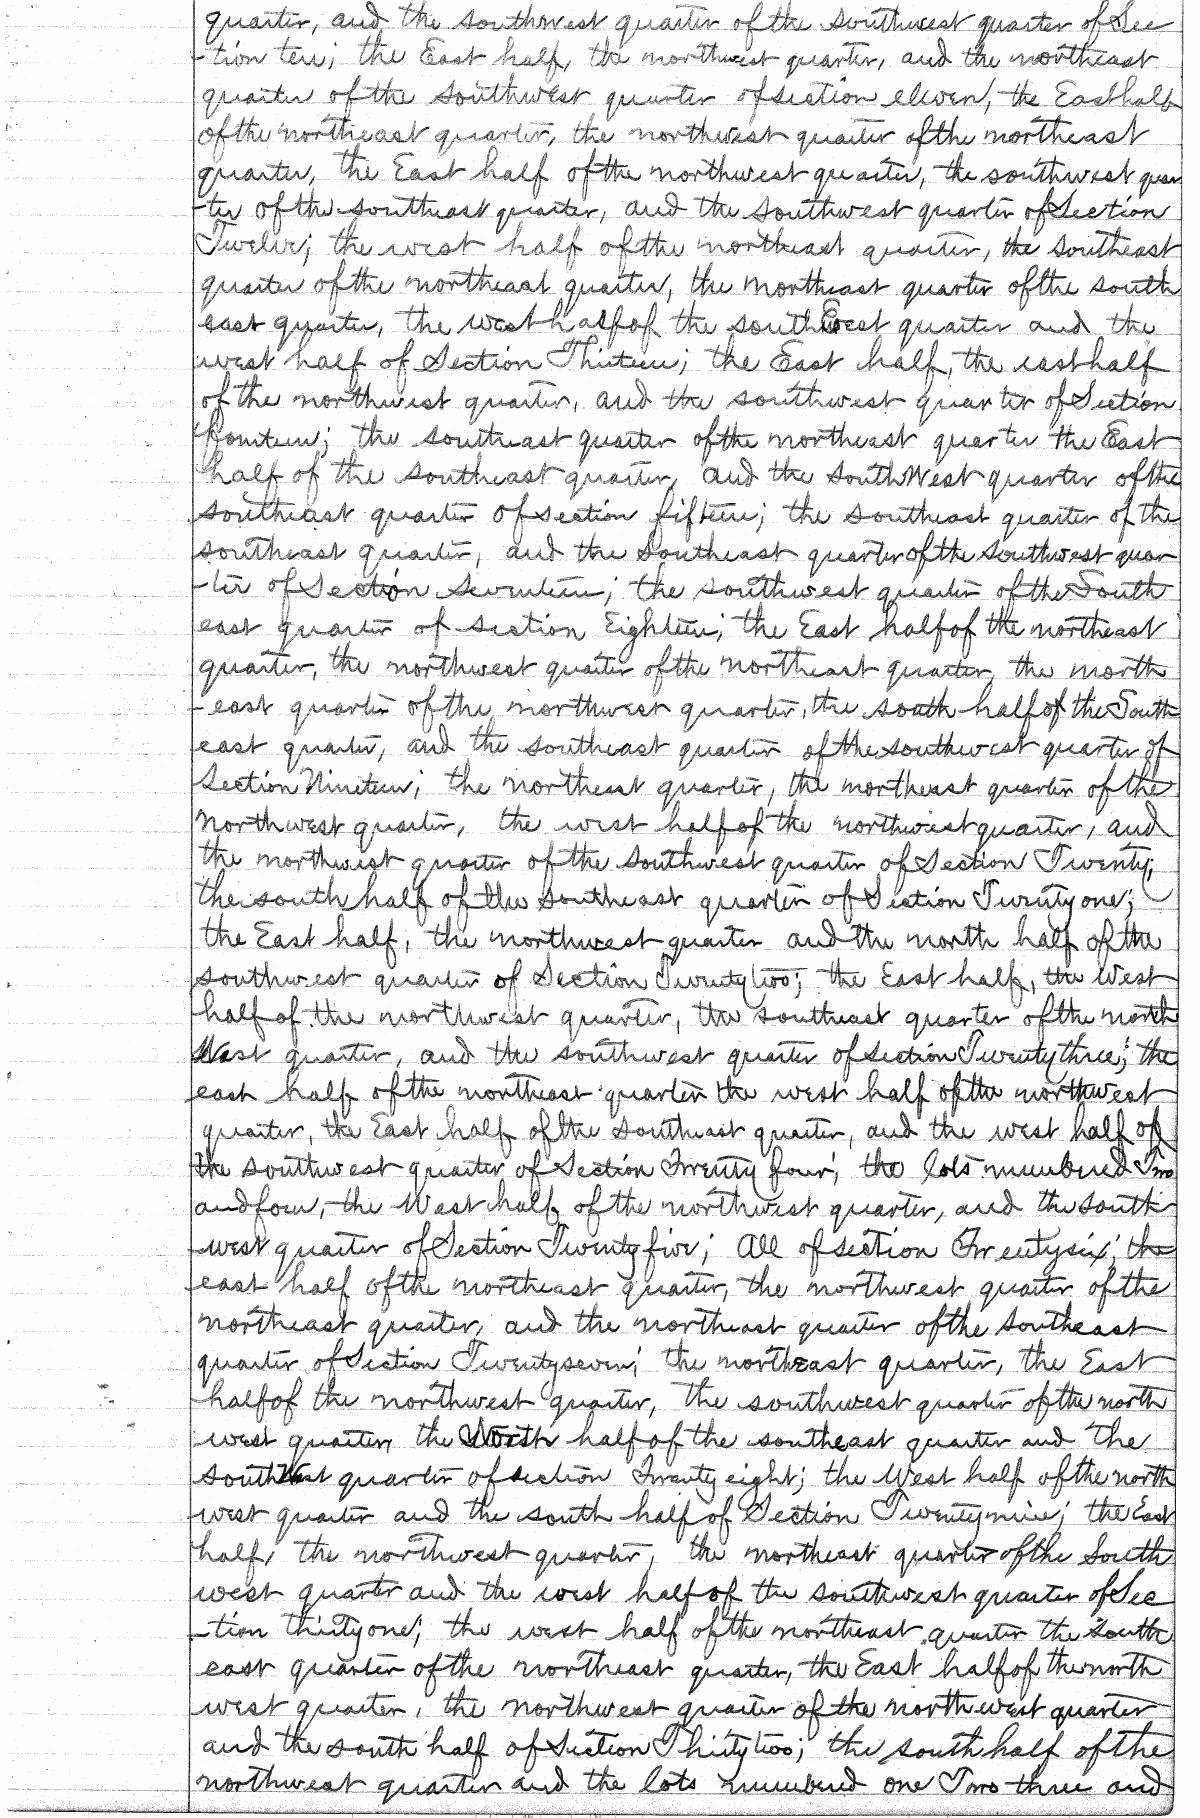 quarter, and the southwest quarter of the southwest quarter of Sec
-tion ten; the East half, the northwest quarter, and the northeast
quarter of the southwest quarter of section eleven, the East half
of the northeast quarter, the northwest quarter of the northeast
quarter, the East half of the northwest quarter, the southwest quar
-ter of the southeast quarter, and the southwest quarter of Section
Twelve; the west half of the northeast quarter, the southeast
quarter of the northeast quarter, the northeast quarter of the south
east quarter, the west half of the south quarter and the
west half of Section Thirteen; the East half, the east half
of the northwest quarter, and the southwest quarter of Section
fourteen; the southeast quarter of the northeast quarter the East
half of the southeast quarter, and the southWest quarter of the
southeast quarter of section fifteen; the southeast quarter of the
southeast quarter, and the southeast quarter of the southwest quar
-ter of Section seventeen; the southwest quarter of the South
east quarter of section Eighteen; the East half of the northeast
quarter, the northwest quarter of the northeast quarter, the north
-east quarter of the northwest quarter, the south half of the South
east quarter, and the southeast quarter of the southwest quarter of
Section Nineteen; the northeast quarter, the northeast quarter of the
northwest quarter, the west half of the northwest quarter, and
the northwest quarter of the southwest quarter of Section Twenty;
the south half of the southeast quarter of Section Twenty one;
the East half, the northwest quarter and the north half of the
southwest quarter of Section Twenty two; the East half, the West
half of the northwest quarter, the southeast quarter of the north
West quarter, and the southwest quarter of section Twenty three; the
east half of the northeast quarter the west half of the northwest
quarter, the East half of the southeast quarter, and the west half of
the southwest quarter of Section Twenty four; the lots numbered Two
and four, the West half of the northwest quarter, and the south
-west quarter of Section Twenty five; All of section Twenty six; the
east half of the northeast quarter, the northwest quarter of the
northeast quarter, and the northeast quarter of the southeast
quarter of Section Twenty seven; the northeast quarter, the East
half of the northwest quarter, the southwest quarter of the north
west quarter, the North half of the southeast quarter and the
southWest quarter of section Twenty eight; the West half of the north
west quarter and the south half of Section Twenty nine; the East
half, the northwest quarter, the northeast quarter of the South
west quarter and the west half of the southwest quarter of Sec
-tion thirty one; the west half of the northeast quarter the South
east quarter of the northeast quarter, the East half of the north
west quarter, the northwest quarter of the northwest quarter
and the south half of Section Thirty two; the south half of the
northwest quarter and the lots numbered one Two three and